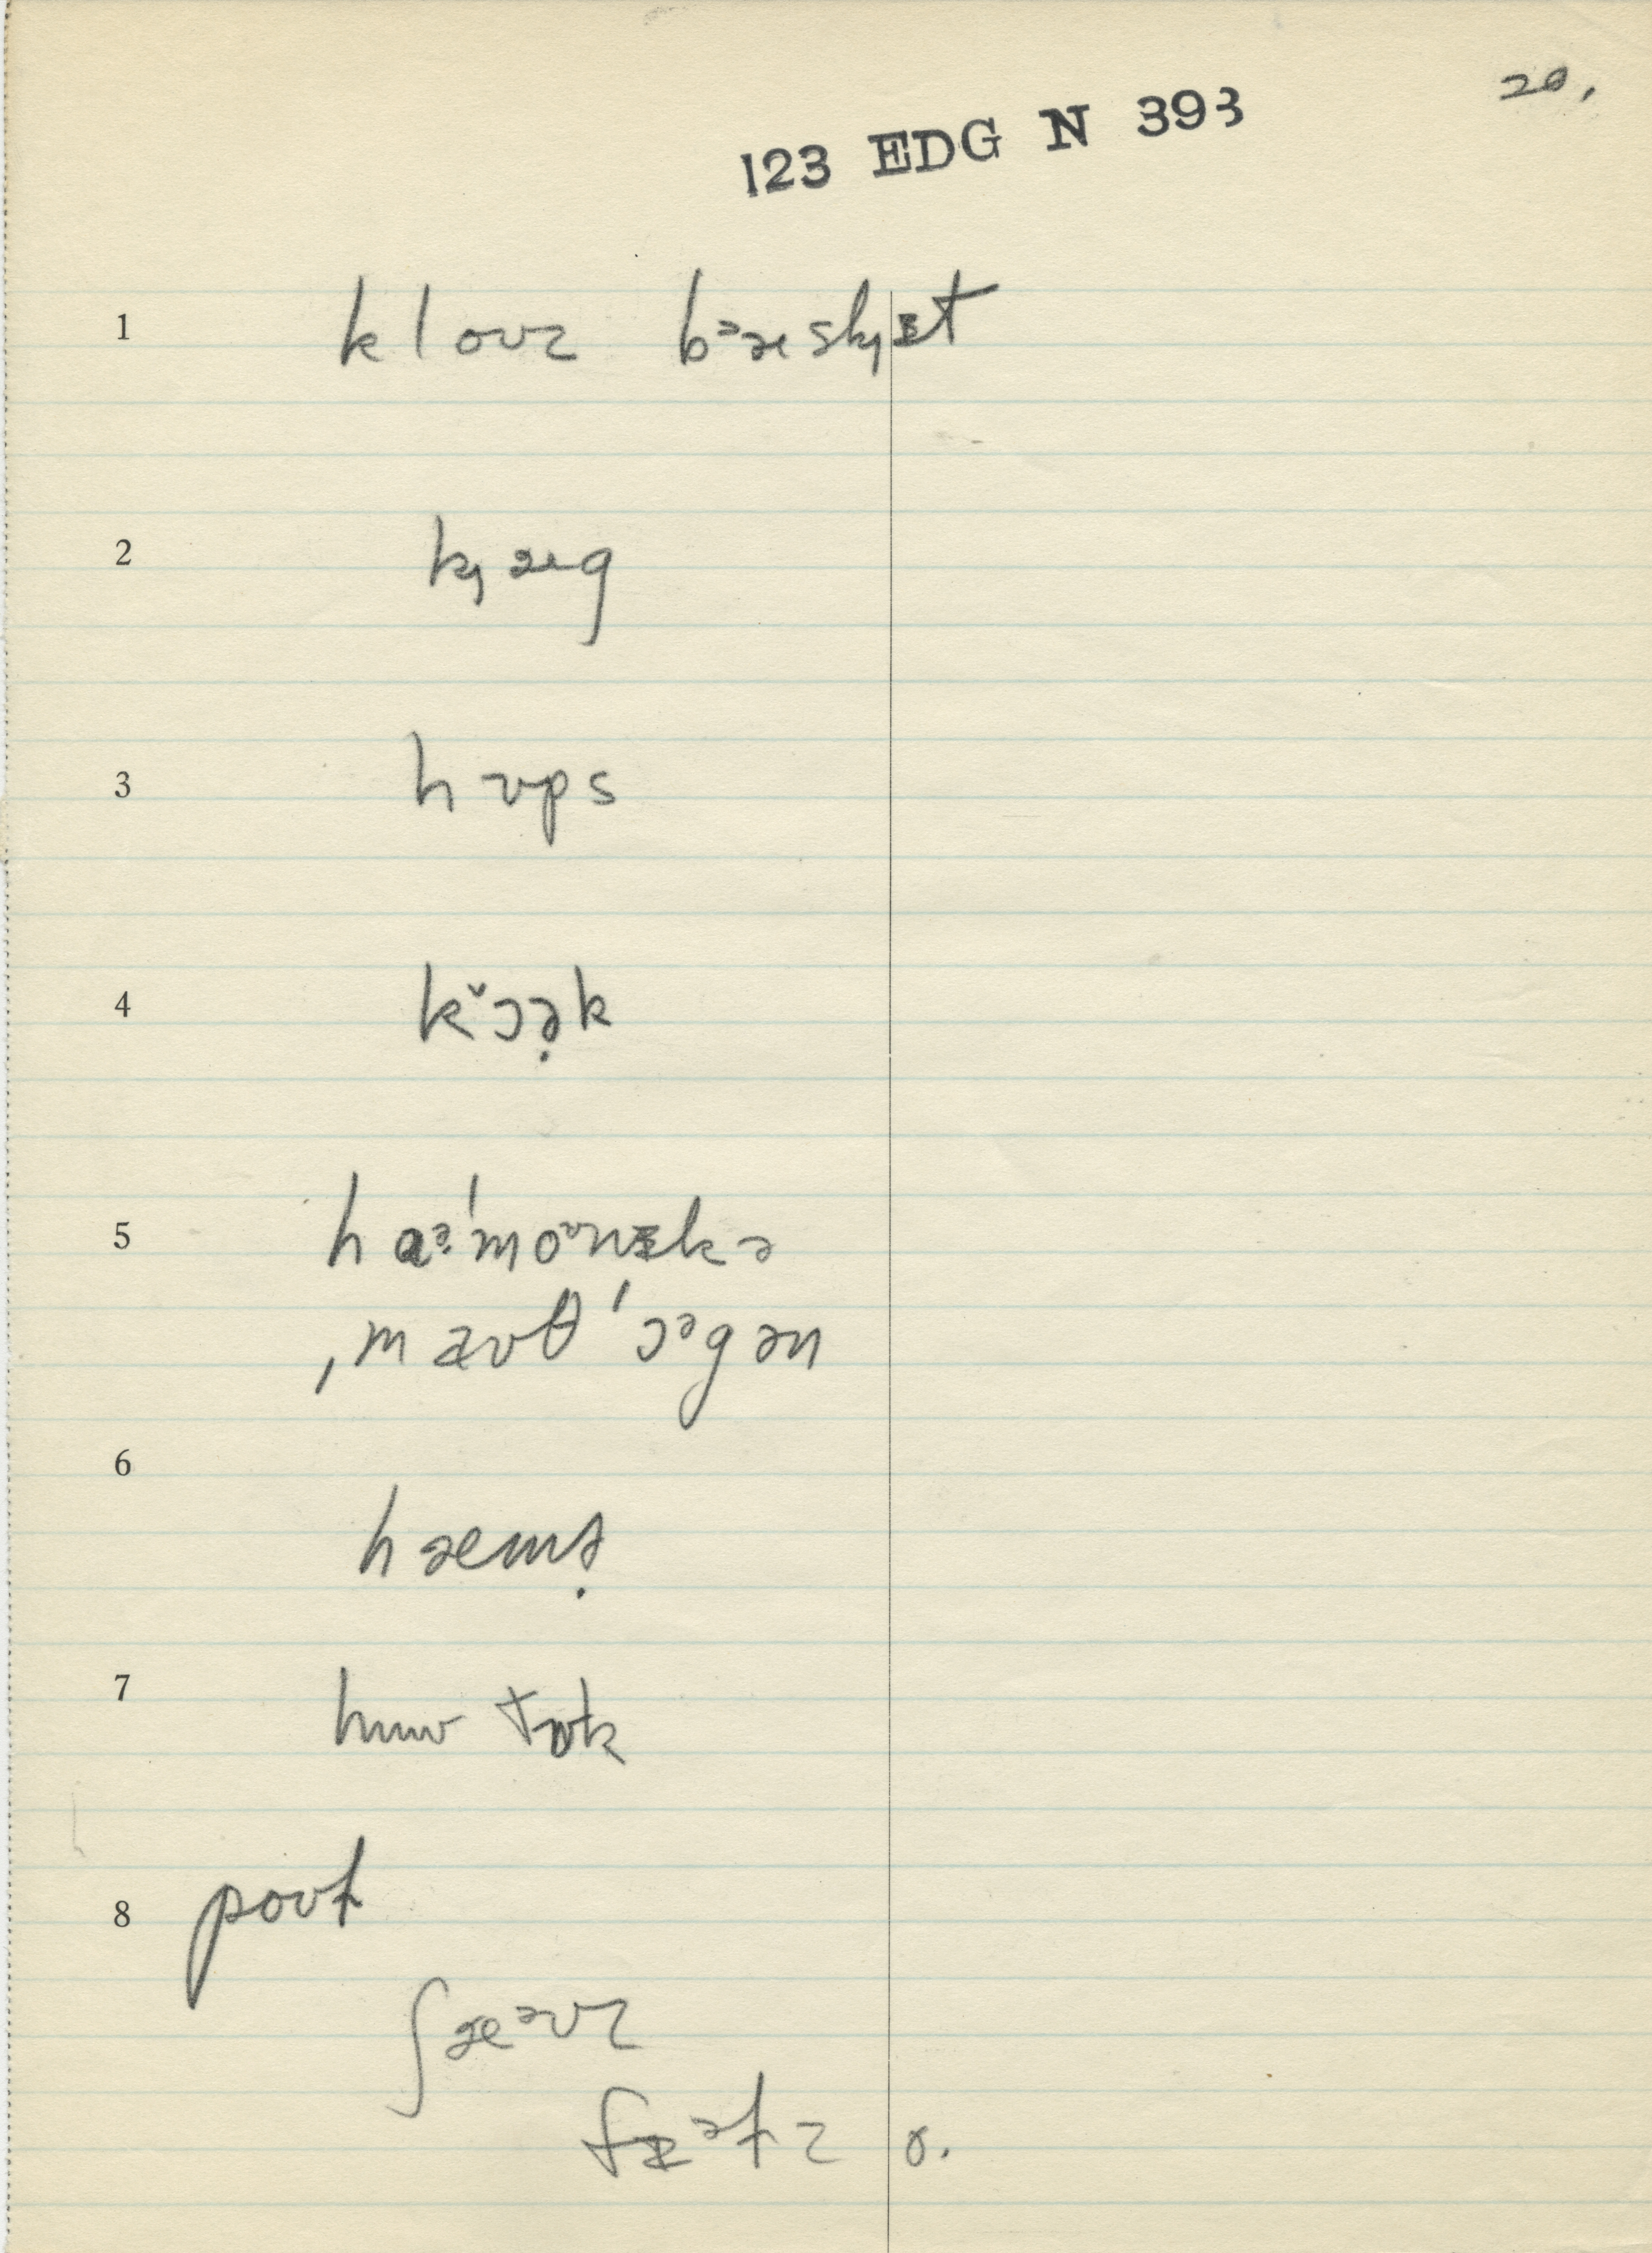 20.
123 EDG N 393
1 kloʊz bᵊæsk̟ɪt
2 k̟æg
3 hʊps
4 kˇɔə̣k
5 hɑə̣ˈmoᵊnɪkə
ˌmæʊθˈɔᵊgən
6 hæmɚ̣
7 hæʊ tɒk
8 poʊɫ
ʃæᵊʊz
fɪᵊɫz o.